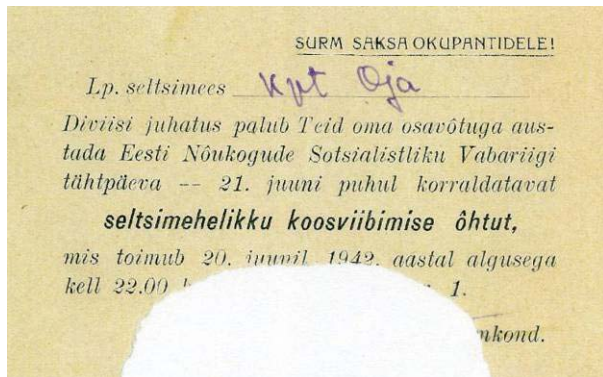 SURM SAKSA OKUPANTIDELE!
Lp. seltsimees Kpt Oja
Diviisi juhatus palub Teid oma osavõtuga aus-
tada Eesti Nõukogude Sotsialistliku Vabariigi
tähtpäeva -- 21. juuni puhul korraldatavat
seltsimehelikku koosviibimise õhtut,
mis toimub 20. juunil 1942. aastal algusega
kell 22.00 1.